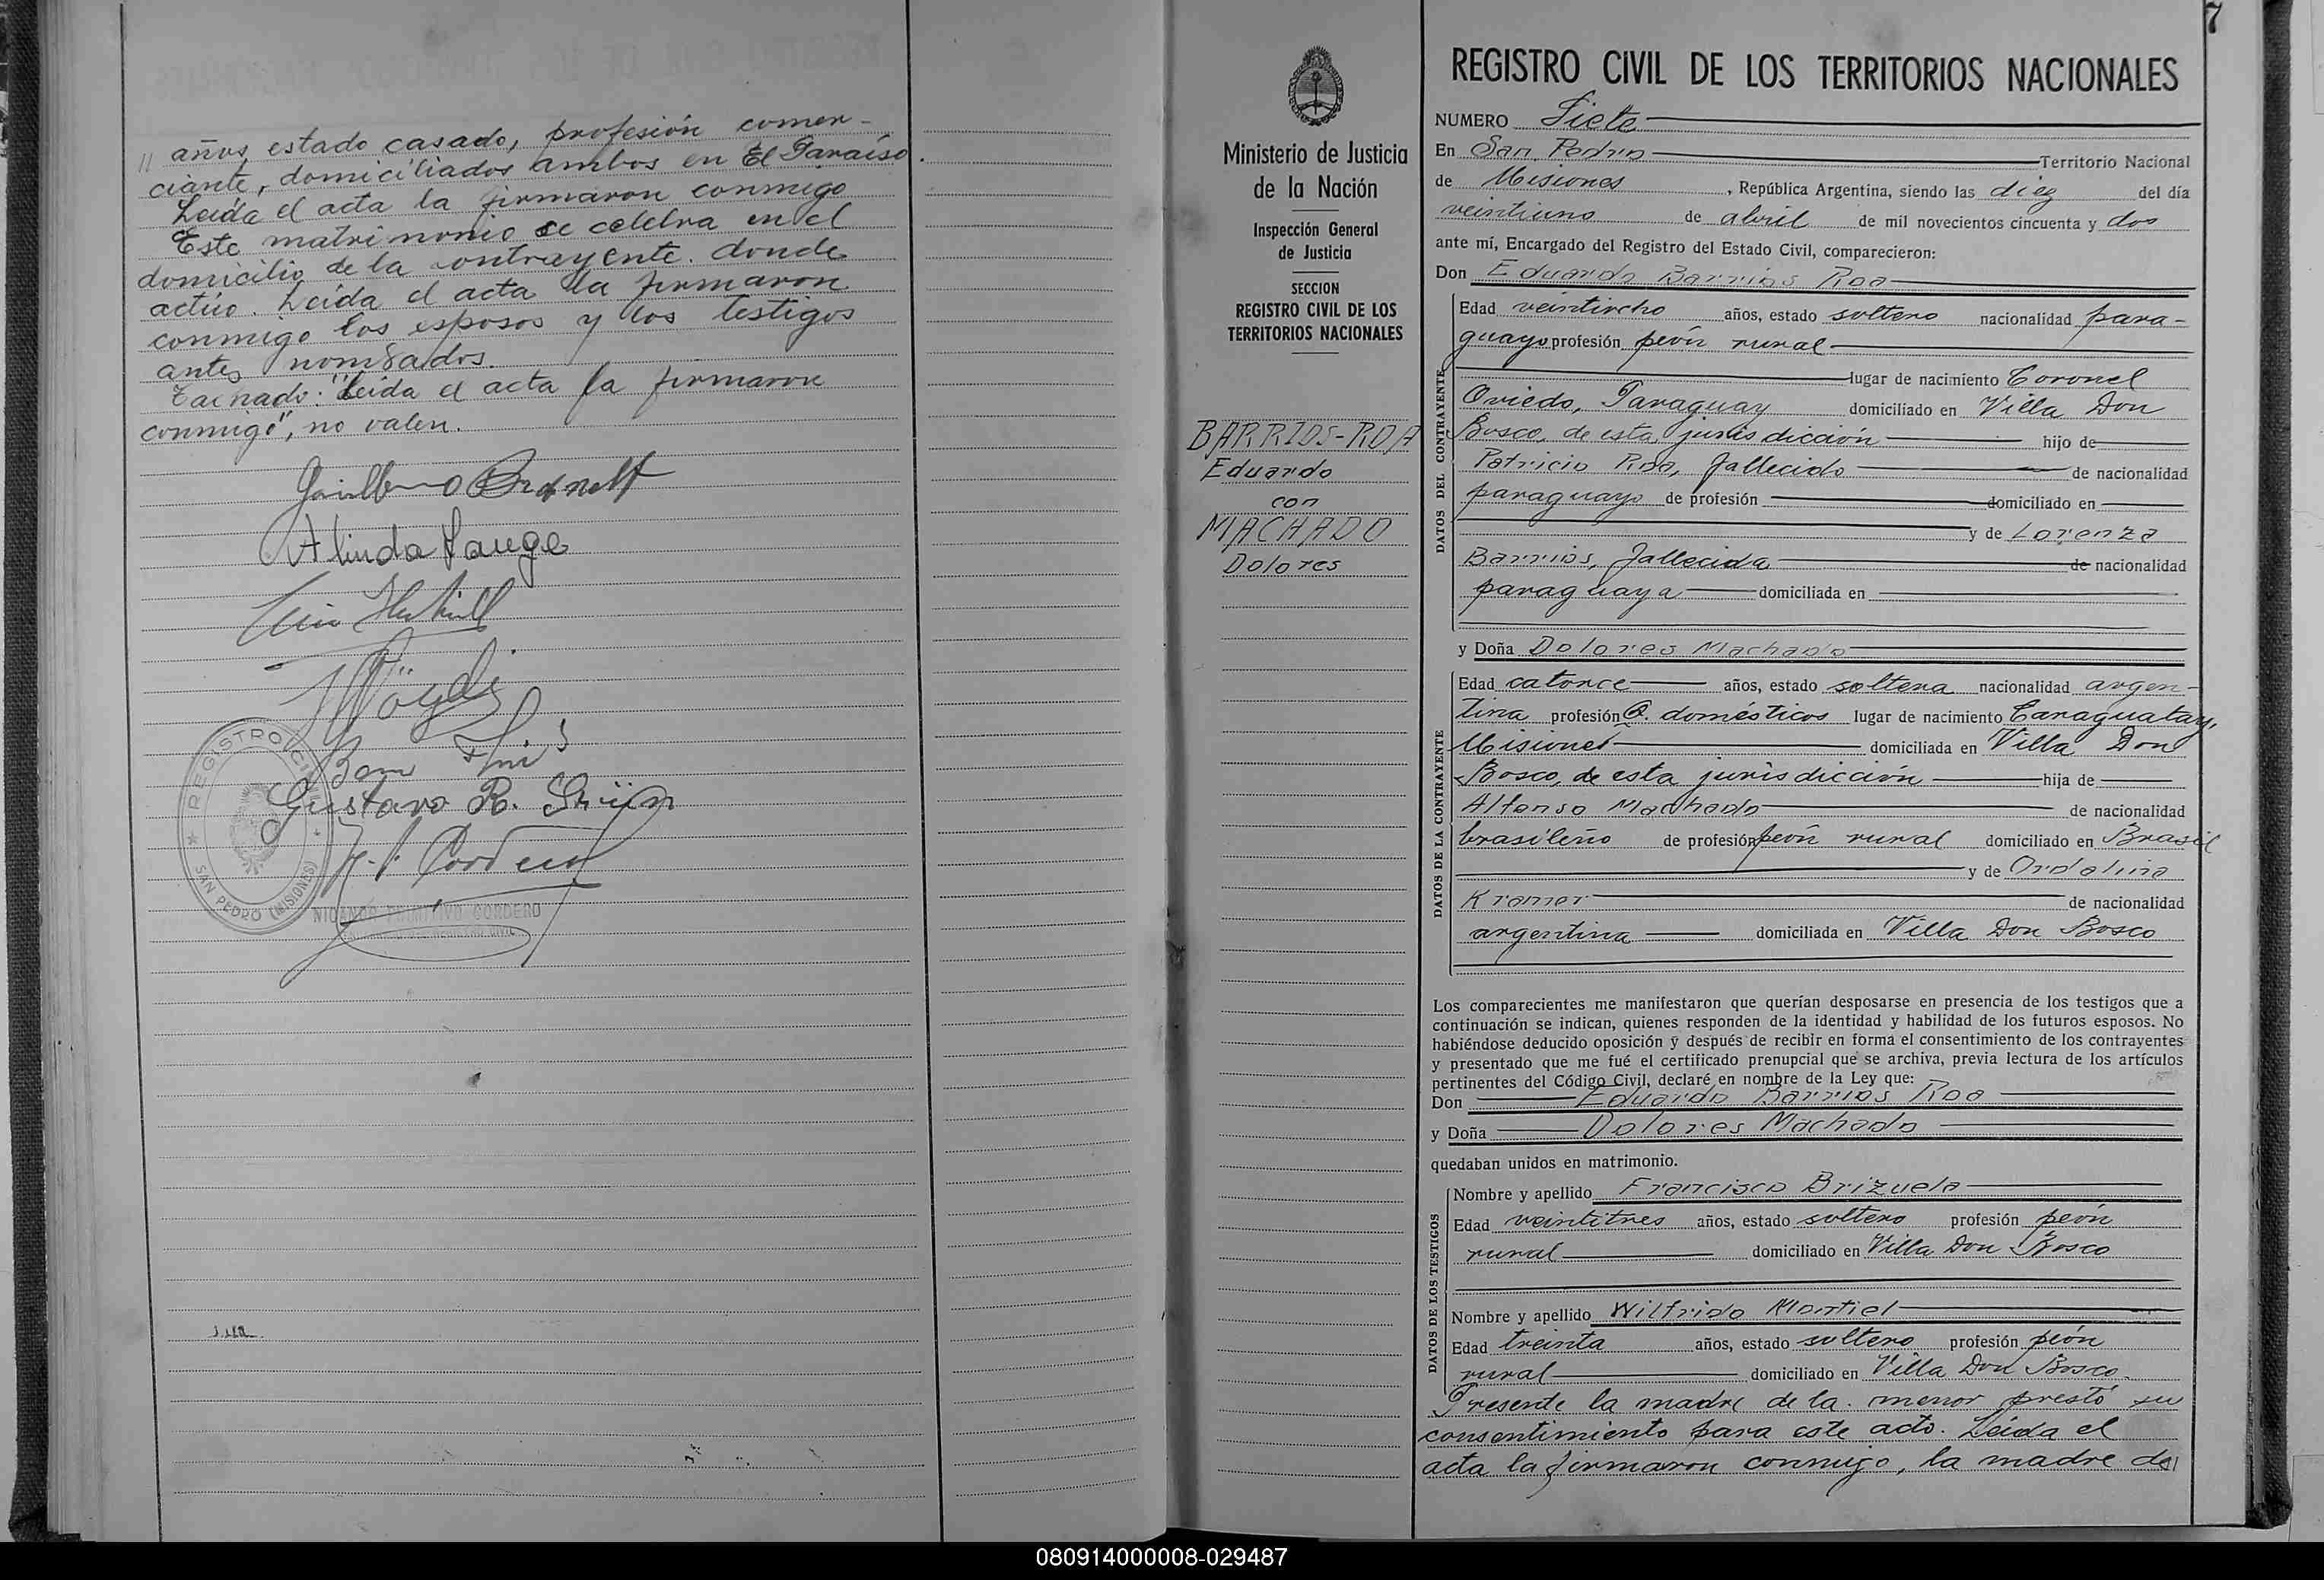 años, estado casado, profesión comer-
ciante, domiciliados ambos en El Paraíso.
Leída el acta la firmaron conmigo
Este matrimonio se celebra en el
domicilio de la contrayente. donde
actúo. Leída el acta la firmaron
conmigo los esposos y los testigos
antes nombrados.
Tachado: "Leída el acta la firmaron
conmigo", no valen.
Alinda Lange
Gustavo R.
REGISTRO CIVIL
SAN PEDRO (MISIONES)
NICANOR PRIMITIVO CORDERO
7
Ministerio de Justicia
de la Nación
Inspección General
de Justicia
SECCION
REGISTRO CIVIL DE LOS
TERRITORIOS NACIONALES
BARRIOS-ROA
Eduardo
con
MACHADO
Dolores
REGISTRO CIVIL DE LOS TERRITORIOS NACIONALES
NUMERO Siete
En San Pedro Territorio Nacional
de Misiones, República Argentina, siendo las diez del día
veintiuno de abril de mil novecientos cincuenta y dos
ante mí, Encargado del Registro del Estado Civil, comparecieron:
Don Eduardo Barrios Roa
DATOS DEL CONTRAYENTE
Edad veintiocho años, estado soltero nacionalidad para-
guayo profesión peón rural
lugar de nacimiento Coronel
Oviedo, Paraguay domiciliado en Villa Don
Bosco, de esta jurisdicción hijo de
Patricio Roa, fallecido de nacionalidad
paraguayo de profesión domiciliado en
y de Lorenza
Barrios, fallecida de nacionalidad
paraguaya domiciliada en
y Doña Dolores Machado
DATOS DE LA CONTRAYENTE
Edad catorce años, estado soltera nacionalidad argen-
tina profesión Q. domésticos lugar de nacimiento Caraguatay,
Misiones domiciliada en Villa Don
Bosco, de esta jurisdicción hija de
Alfonso Machado de nacionalidad
brasileño de profesión peón rural domiciliado en Brasil
y de Ordalina
Kramer de nacionalidad
argentina domiciliada en Villa Don Bosco
Los comparecientes me manifestaron que querían desposarse en presencia de los testigos que a
continuación se indican, quienes responden de la identidad y habilidad de los futuros esposos. No
habiéndose deducido oposición y después de recibir en forma el consentimiento de los contrayentes
y presentado que me fué el certificado prenupcial que se archiva, previa lectura de los artículos
pertinentes del Código Civil, declaré en nombre de la Ley que:
Don Eduardo Barrios Roa
y Doña Dolores Machado
quedaban unidos en matrimonio.
DATOS DE LOS TESTIGOS
Nombre y apellido Francisco Brizuela
Edad veintitres años, estado soltero profesión peón
rural domiciliado en Villa Don Bosco
Nombre y apellido Wilfrido Montiel
Edad treinta años, estado soltero profesión peón
rural domiciliado en Villa Don Bosco.
Presente la madre de la menor prestó su
consentimiento para este acto. Leída el
acta la firmaron conmigo, la madre de
080914000008-029487